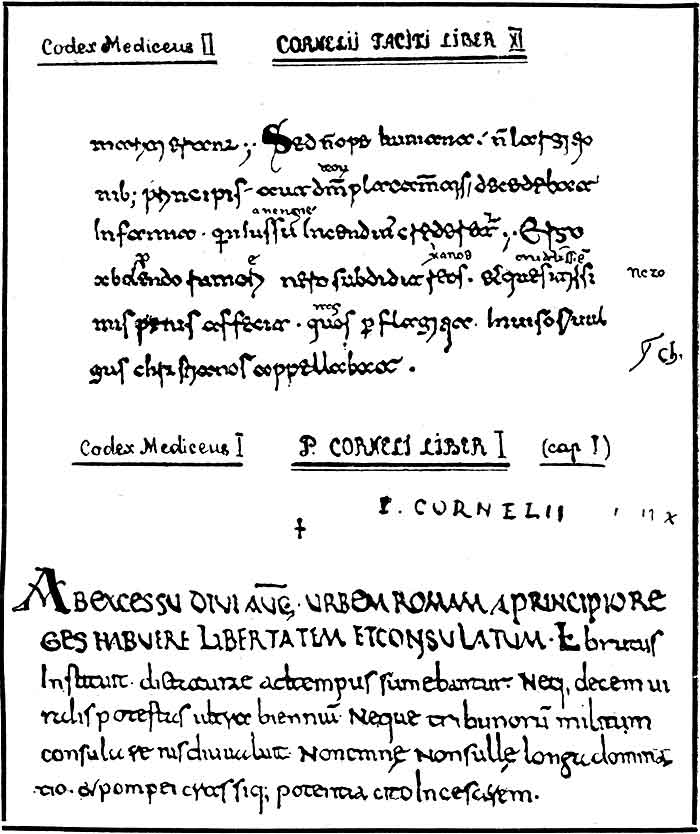 Codex Mediceus II CORNELII TACITI LIBER XI
Sed n̄ ope humana. n̄ largi
nib; principis aut decedebat
Infamia. quin iussū Incendiū crederet̄ ;. Ergo
abolendo rumori nero subdidit reos. et quesitissi
nero
mis penis affecit. quos p flagitia. Inuisos uul
ch.
gus christianos appellabat.
Codex Mediceus I P. CORNELI LIBER I (cap I)
P. CORNELII
AB EXCESSU DIVI AUG. URBEM ROMAM A PRINCIPIO RE
GES HABUERE LIBERTATEM ET CONSULATUM. L brutus
Instituit. dictaturae ad tempus sumebantur. Neq, decem ui
ralis potestas ultra biennīū Neque tribunorū militum
consulare ius diu ualuit. Non cinnę Non sullę longa domina
tio. & pompei crassiq; potentia cito In cesarem.